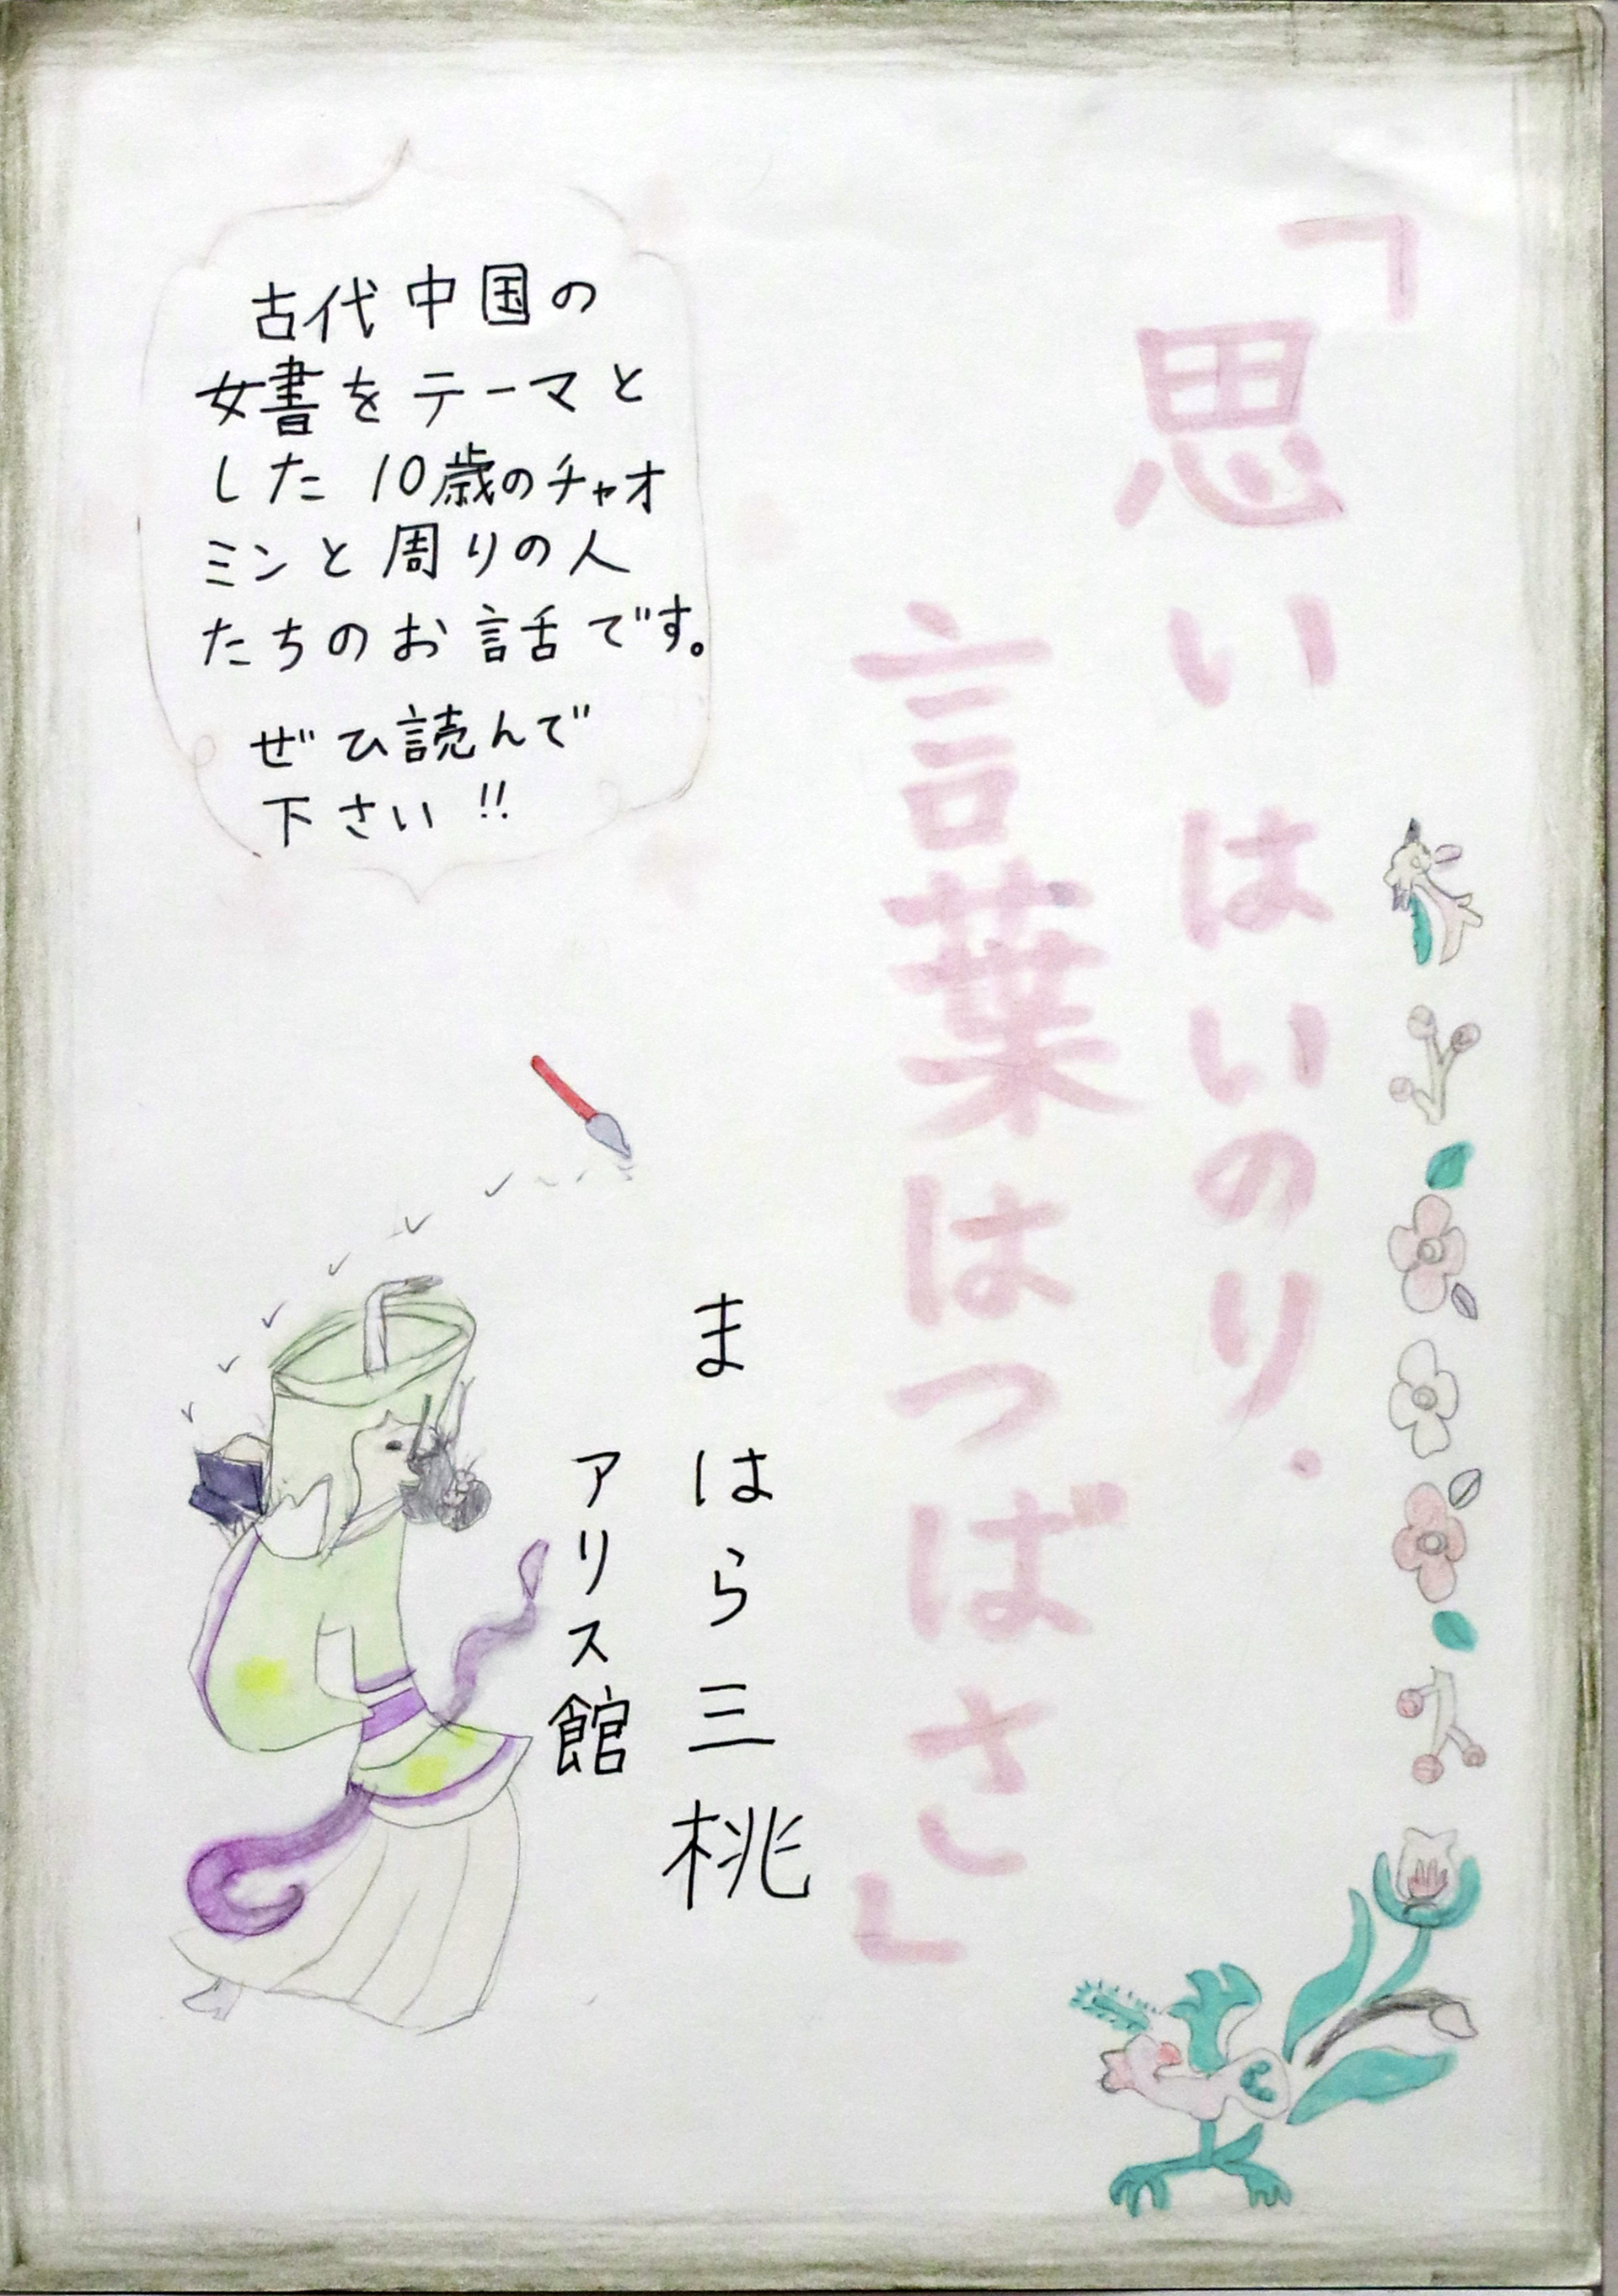 「思いはいのり・
言葉はつばさ」
まはら三桃
アリス館
古代中国の
女書をテーマと
した10歳のチャオ
ミンと周りの人
たちのお話です。
ぜひ読んで
下さい!!